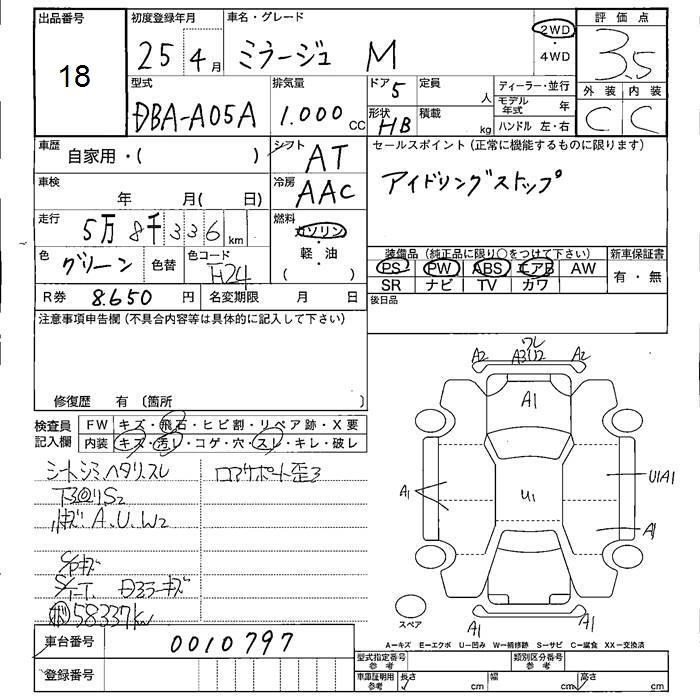 出品番号 初度登録年月 車名・グレード 評価点
18 25年 4月 ミラージュ M 2WD・4WD 3.5
型式 排気量 ドア 5 定員 人 ディーラー・並行 外装 内装
DBA-A05A 1.000 cc 形状 HB 積載 kg モデル年式 年 C C
ハンドル 左・右
車歴 自家用・( ) シフト AT セールスポイント(正常に機能するものに限ります)
車検 年 月(日) 冷房 AAC アイドリングストップ
走行 5万8千336km 燃料 ガソリン・軽・油 ( )
色 グリーン 色替 色コード H24 装備品(純正品に限り○をつけて下さい) 新車保証書
PS PW ABS エアB AW 有・無
SR ナビ TV カワ
R券 8.650円 名変期限 月 日 後日品
注意事項申告欄(不具合内容等は具体的に記入して下さい)
修復歴 有 〔箇所 〕
検査員記入欄 FW キズ・飛石・ヒビ割・リペア跡・X要
内装 キズ・汚レ・コゲ・穴・スレ・キレ・破レ
シートシミ、ヘタリ、スレ ロアサポート歪ミ
下回りS2
小キズ A、U、W2
58337km
A2 ワレ A3U2 A2
A1
U1
A1 U1A1
A1
A1 A1
スペア
A－キズ E－エクボ U－凹み W－補修跡 S－サビ C－腐食 XX－交換済
車台番号 0010797 型式指定番号 参考 類別区分番号 参考
登録番号 車庫証明用 参考 長さ cm 幅 cm 高さ cm